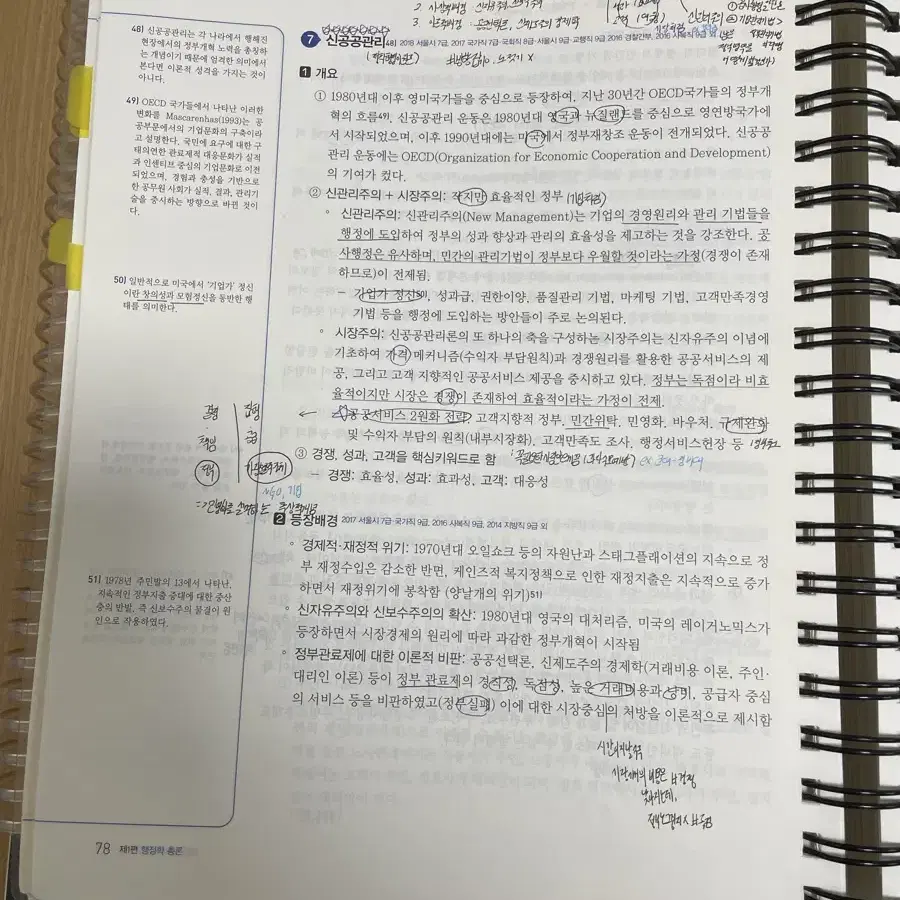 7 신공공관리48) 2018 서울시 7급, 2017 국가직 7급·국회직 8급·서울시 9급·교행직 9급 2016 경찰간부, 2016 사회복지 9급
1 개요
① 1980년대 이후 영미국가들을 중심으로 등장하여, 지난 30년간 OECD국가들의 정부개
혁의 흐름49). 신공공관리 운동은 1980년대 영국과 뉴질랜드를 중심으로 영연방국가에
서 시작되었으며, 이후 1990년대에는 미국에서 정부재창조 운동이 전개되었다. 신공공
관리 운동에는 OECD(Organization for Economic Cooperation and Development)
의 기여가 컸다.
② 신관리주의 + 시장주의: 작지만 효율적인 정부
◦ 신관리주의: 신관리주의(New Management)는 기업의 경영원리와 관리 기법들을
행정에 도입하여 정부의 성과 향상과 관리의 효율성을 제고하는 것을 강조한다. 공
사행정은 유사하며, 민간의 관리기법이 정부보다 우월할 것이라는 가정(경쟁이 존재
하므로)이 전제됨.
– 기업가 정신50), 성과급, 권한이양, 품질관리 기법, 마케팅 기법, 고객만족경영
기법 등을 행정에 도입하는 방안들이 주로 논의된다.
◦ 시장주의: 신공공관리론의 또 하나의 축을 구성하는 시장주의는 신자유주의 이념에
기초하여 가격 메커니즘(수익자 부담원칙)과 경쟁원리를 활용한 공공서비스의 제
공, 그리고 고객 지향적인 공공서비스 제공을 중시하고 있다. 정부는 독점이라 비효
율적이지만 시장은 경쟁이 존재하여 효율적이라는 가정이 전제.
← 공공서비스 2원화 전략, 고객지향적 정부, 민간위탁, 민영화, 바우처, 규제완화
및 수익자 부담의 원칙(내부시장화), 고객만족도 조사, 행정서비스헌장 등
③ 경쟁, 성과, 고객을 핵심키워드로 함
– 경쟁: 효율성, 성과: 효과성, 고객: 대응성
2 등장배경 2017 서울시 7급·국가직 9급, 2016 사복직 9급, 2014 지방직 9급 외
◦ 경제적·재정적 위기: 1970년대 오일쇼크 등의 자원난과 스태그플레이션의 지속으로 정
부 재정수입은 감소한 반면, 케인즈적 복지정책으로 인한 재정지출은 지속적으로 증가
하면서 재정위기에 봉착함 (양날개의 위기)51)
◦ 신자유주의와 신보수주의의 확산: 1980년대 영국의 대처리즘, 미국의 레이거노믹스가
등장하면서 시장경제의 원리에 따라 과감한 정부개혁이 시작됨
◦ 정부관료제에 대한 이론적 비판: 공공선택론, 신제도주의 경제학(거래비용 이론, 주인·
대리인 이론) 등이 정부 관료제의 경직성, 독점성, 높은 거래비용과 낭비, 공급자 중심
의 서비스 등을 비판하였고(정부실패) 이에 대한 시장중심의 처방을 이론적으로 제시함
48) 신공공관리는 각 나라에서 행해진
현장에서의 정부개혁 노력을 총칭하
는 개념이기 때문에 엄격한 의미에서
본다면 이론적 성격을 가지는 것이
아니다.
49) OECD 국가들에서 나타난 이러한
변화를 Mascarenhas(1993)는 공
공부문에서의 기업문화의 구축이라
고 설명한다. 국민에 요구에 대한 구
태의연한 관료제적 대응문화가 실적
과 인센티브 중심의 기업문화로 이전
되었으며, 경험과 충성을 기반으로
한 공무원 사회가 실적, 결과, 관리기
술을 중시하는 방향으로 바뀐 것이
다.
50) 일반적으로 미국에서 '기업가' 정신
이란 창의성과 모험정신을 동반한 행
태를 의미한다.
NGO, 기업
51) 1978년 주민발의 13에서 나타난,
지속적인 정부지출 증대에 대한 중산
층의 반발, 즉 신보수주의 물결이 원
인으로 작용하였다.
78 제1편 행정학 총론